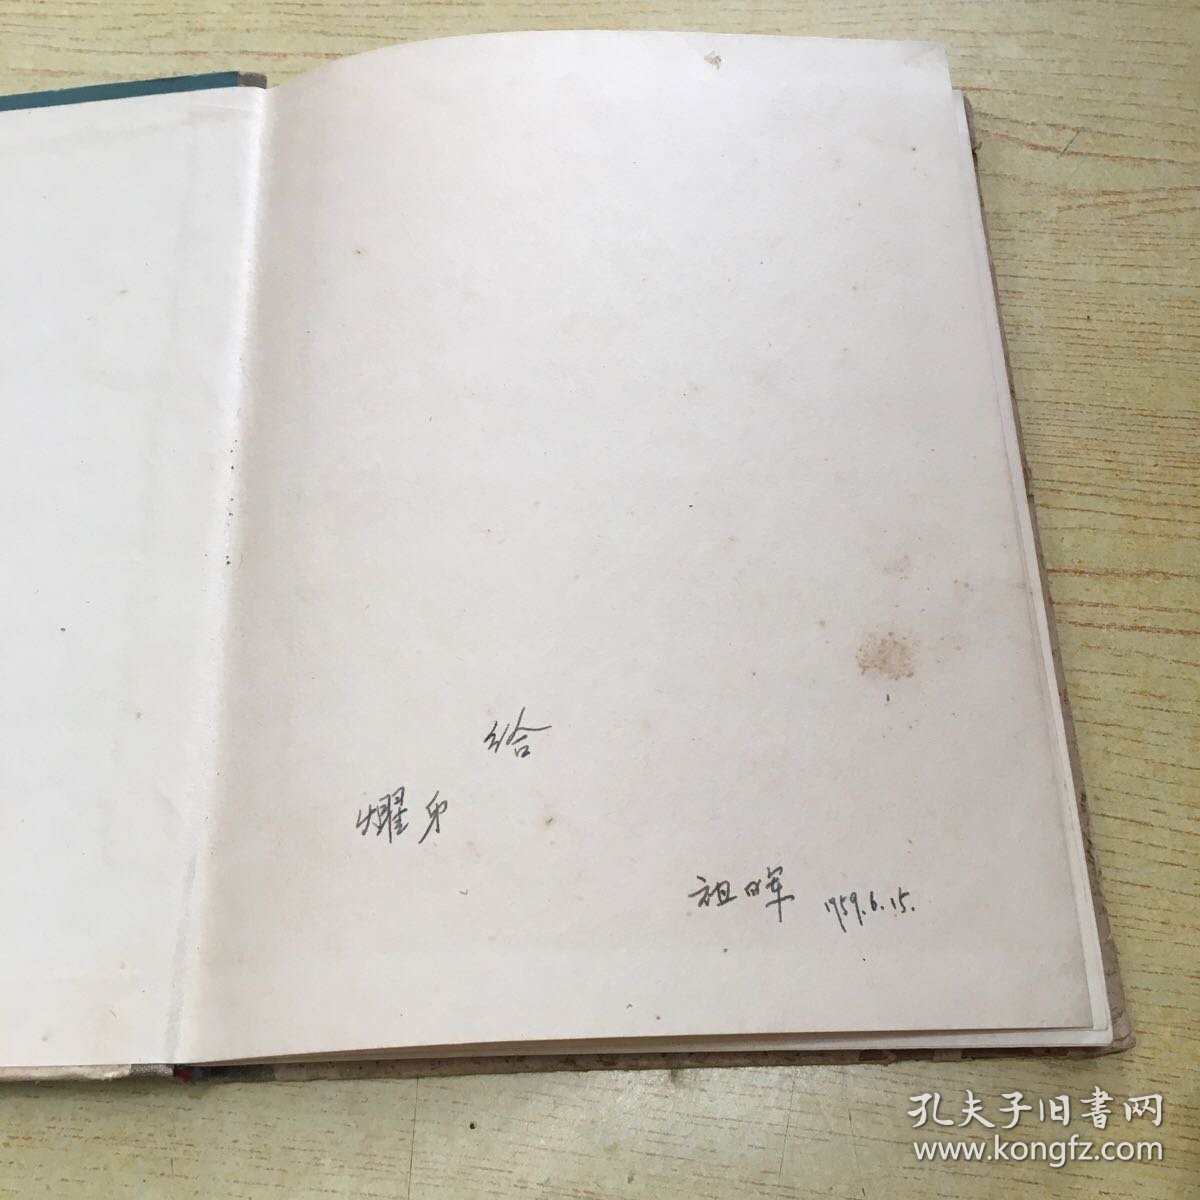 给
燿弟
祖晖 1959.6.15.
孔夫子旧書网
www.kongfz.com